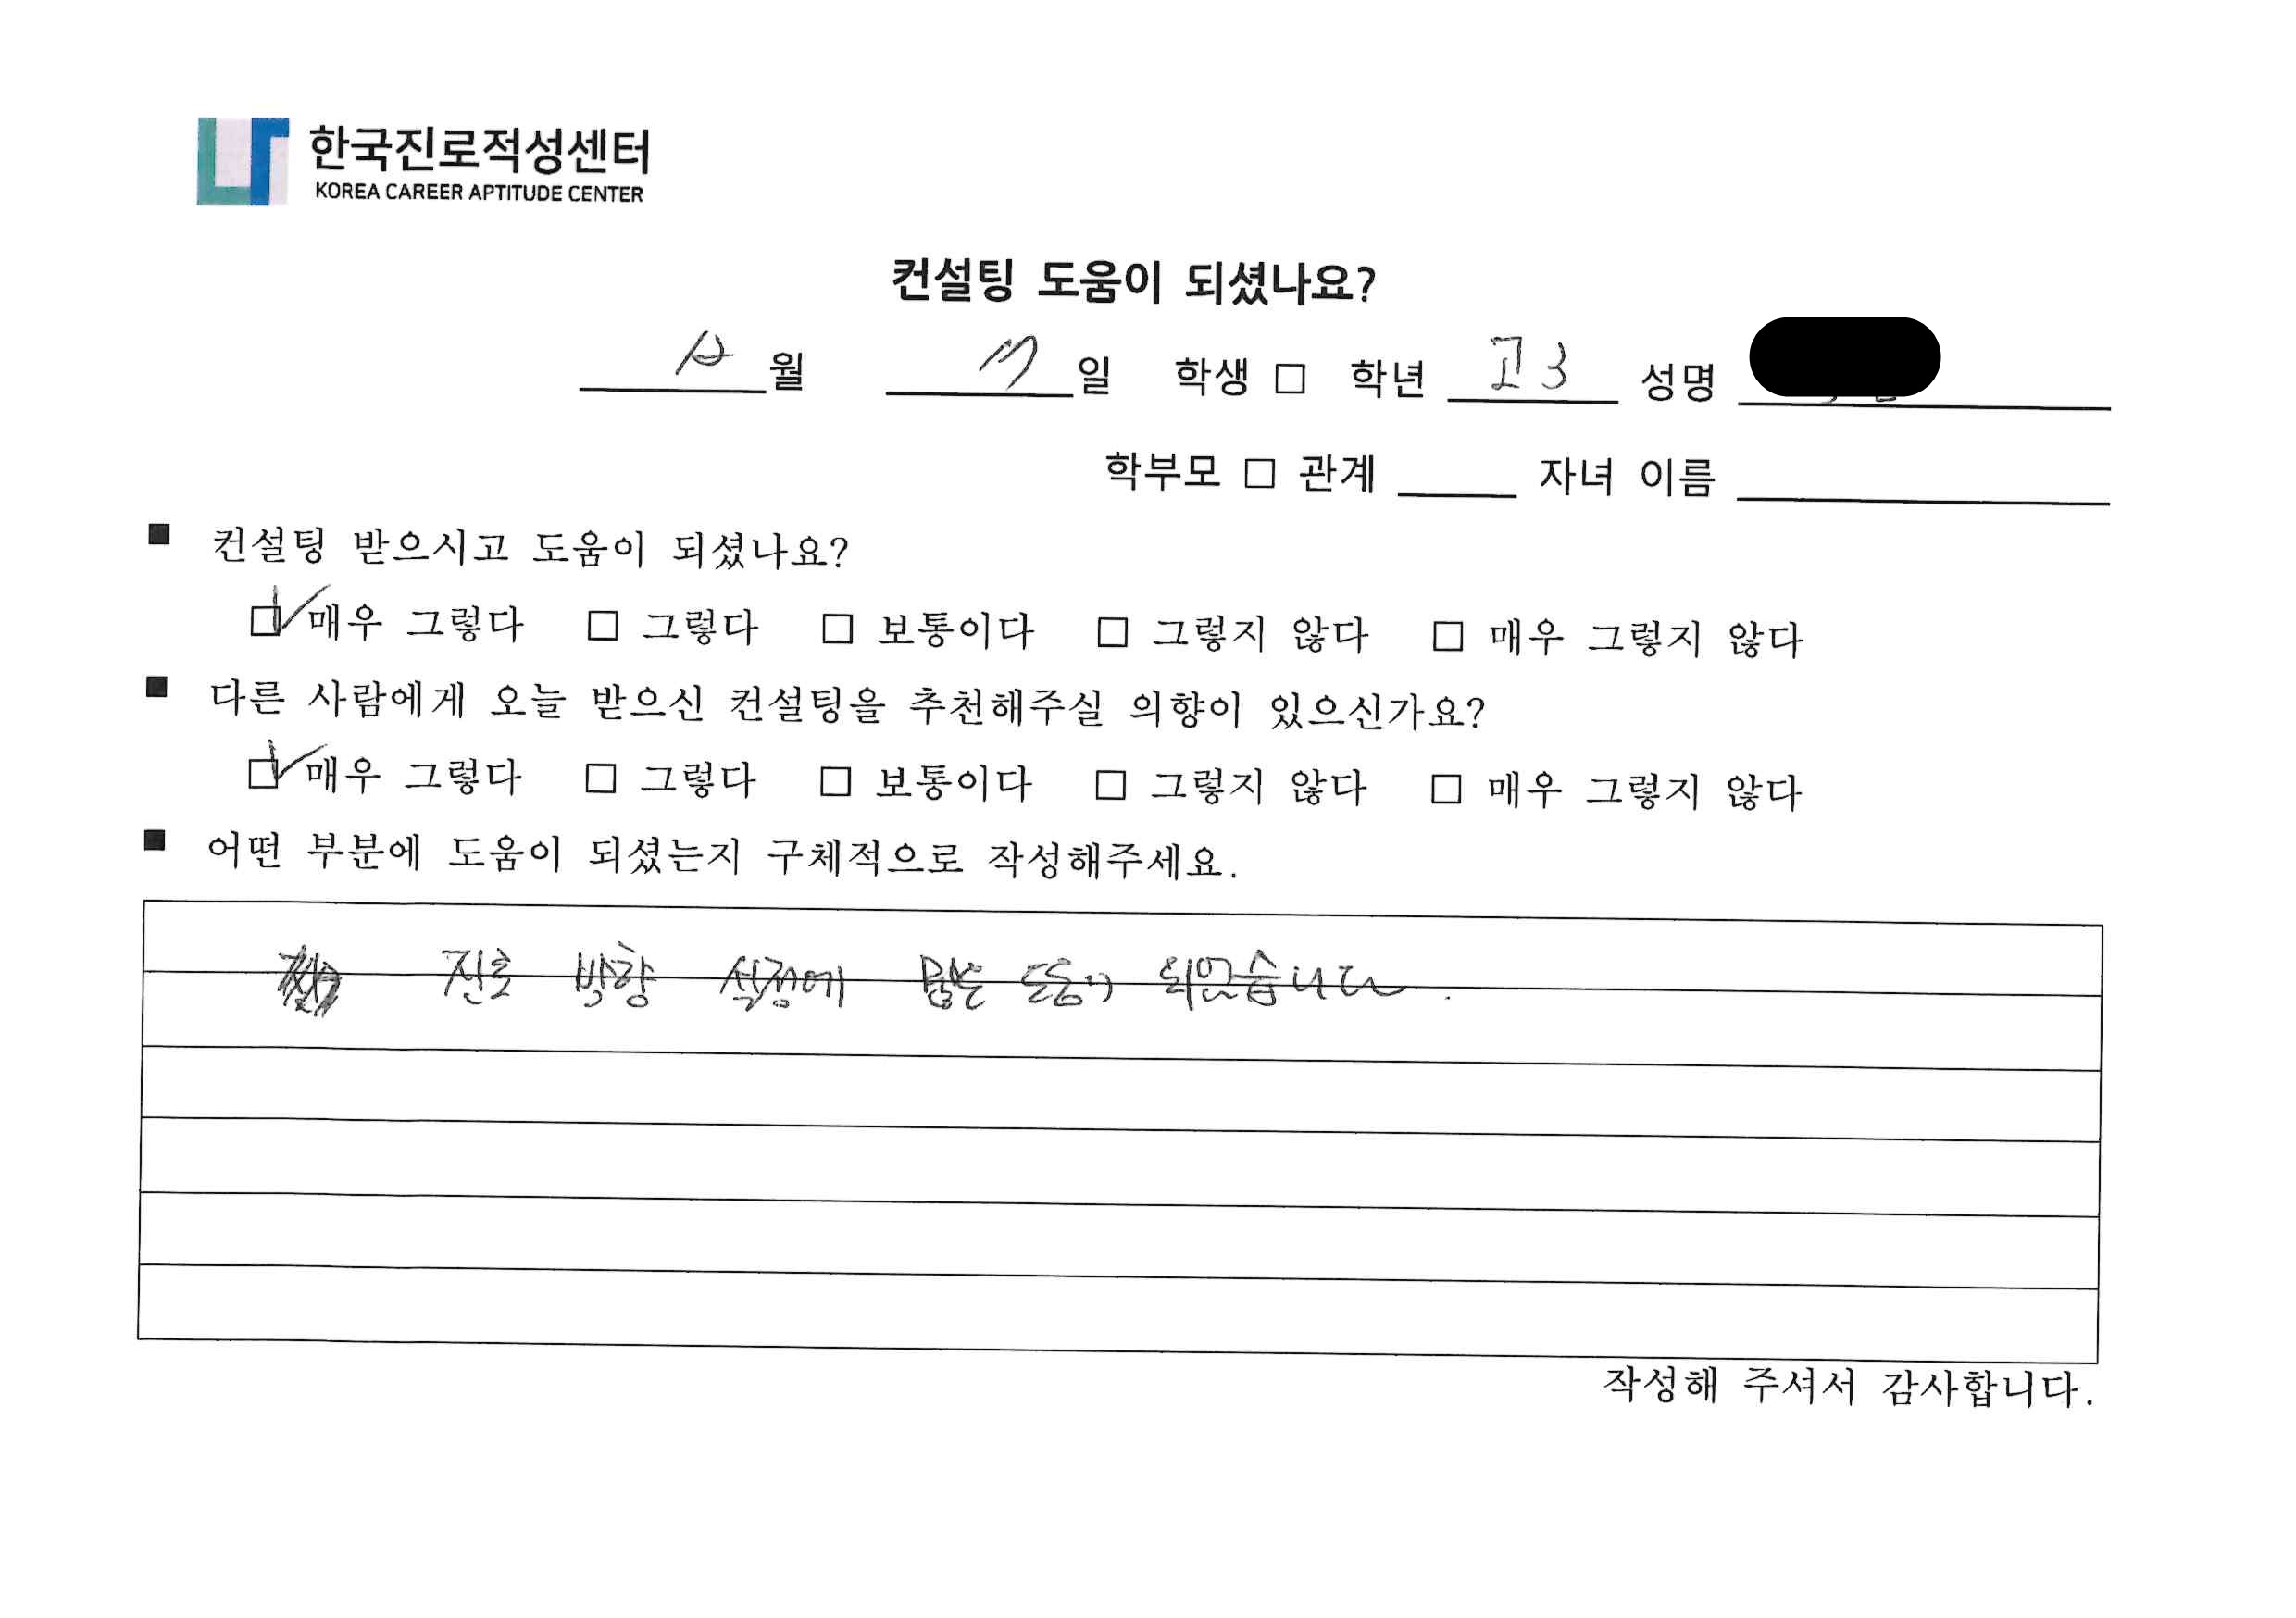 한국진로적성센터
KOREA CAREER APTITUDE CENTER
컨설팅 도움이 되셨나요?
월 일 학생 □ 학년 고3 성명
학부모 □ 관계 자녀 이름
■ 컨설팅 받으시고 도움이 되셨나요?
☑ 매우 그렇다 □ 그렇다 □ 보통이다 □ 그렇지 않다 □ 매우 그렇지 않다
■ 다른 사람에게 오늘 받으신 컨설팅을 추천해주실 의향이 있으신가요?
☑ 매우 그렇다 □ 그렇다 □ 보통이다 □ 그렇지 않다 □ 매우 그렇지 않다
■ 어떤 부분에 도움이 되셨는지 구체적으로 작성해주세요.
진로 방향 설정에 많은 도움이 되었습니다.
작성해 주셔서 감사합니다.